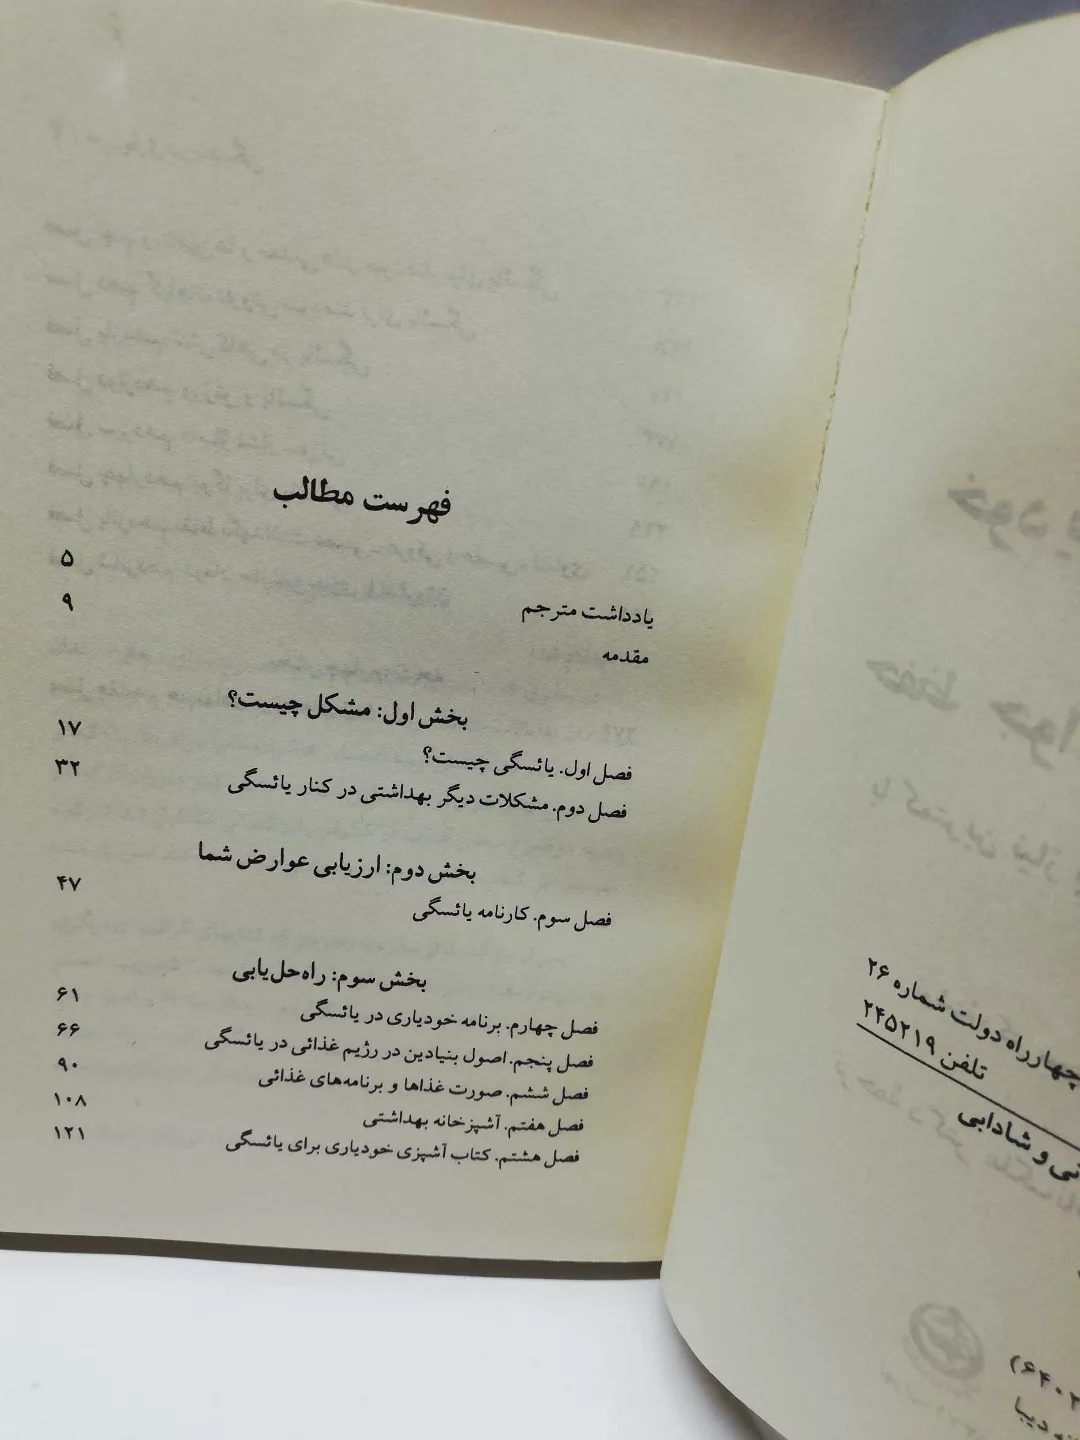 فهرست مطالب
یادداشت مترجم ۵
مقدمه ۹
بخش اول: مشکل چیست؟
فصل اول. یائسگی چیست؟ ۱۷
فصل دوم. مشکلات دیگر بهداشتی در کنار یائسگی ۳۲
بخش دوم: ارزیابی عوارض شما
فصل سوم. کارنامه یائسگی ۴۷
بخش سوم: راه‌حل‌یابی
فصل چهارم. برنامه خودیاری در یائسگی ۶۱
فصل پنجم. اصول بنیادین در رژیم غذائی در یائسگی ۶۶
فصل ششم. صورت غذاها و برنامه‌های غذائی ۹۰
فصل هفتم. آشپزخانه بهداشتی ۱۰۸
فصل هشتم. کتاب آشپزی خودیاری برای یائسگی ۱۲۱
چهارراه دولت شماره ۲۶
تلفن ۲۴۵۲۱۹
و شادابی
دیبا